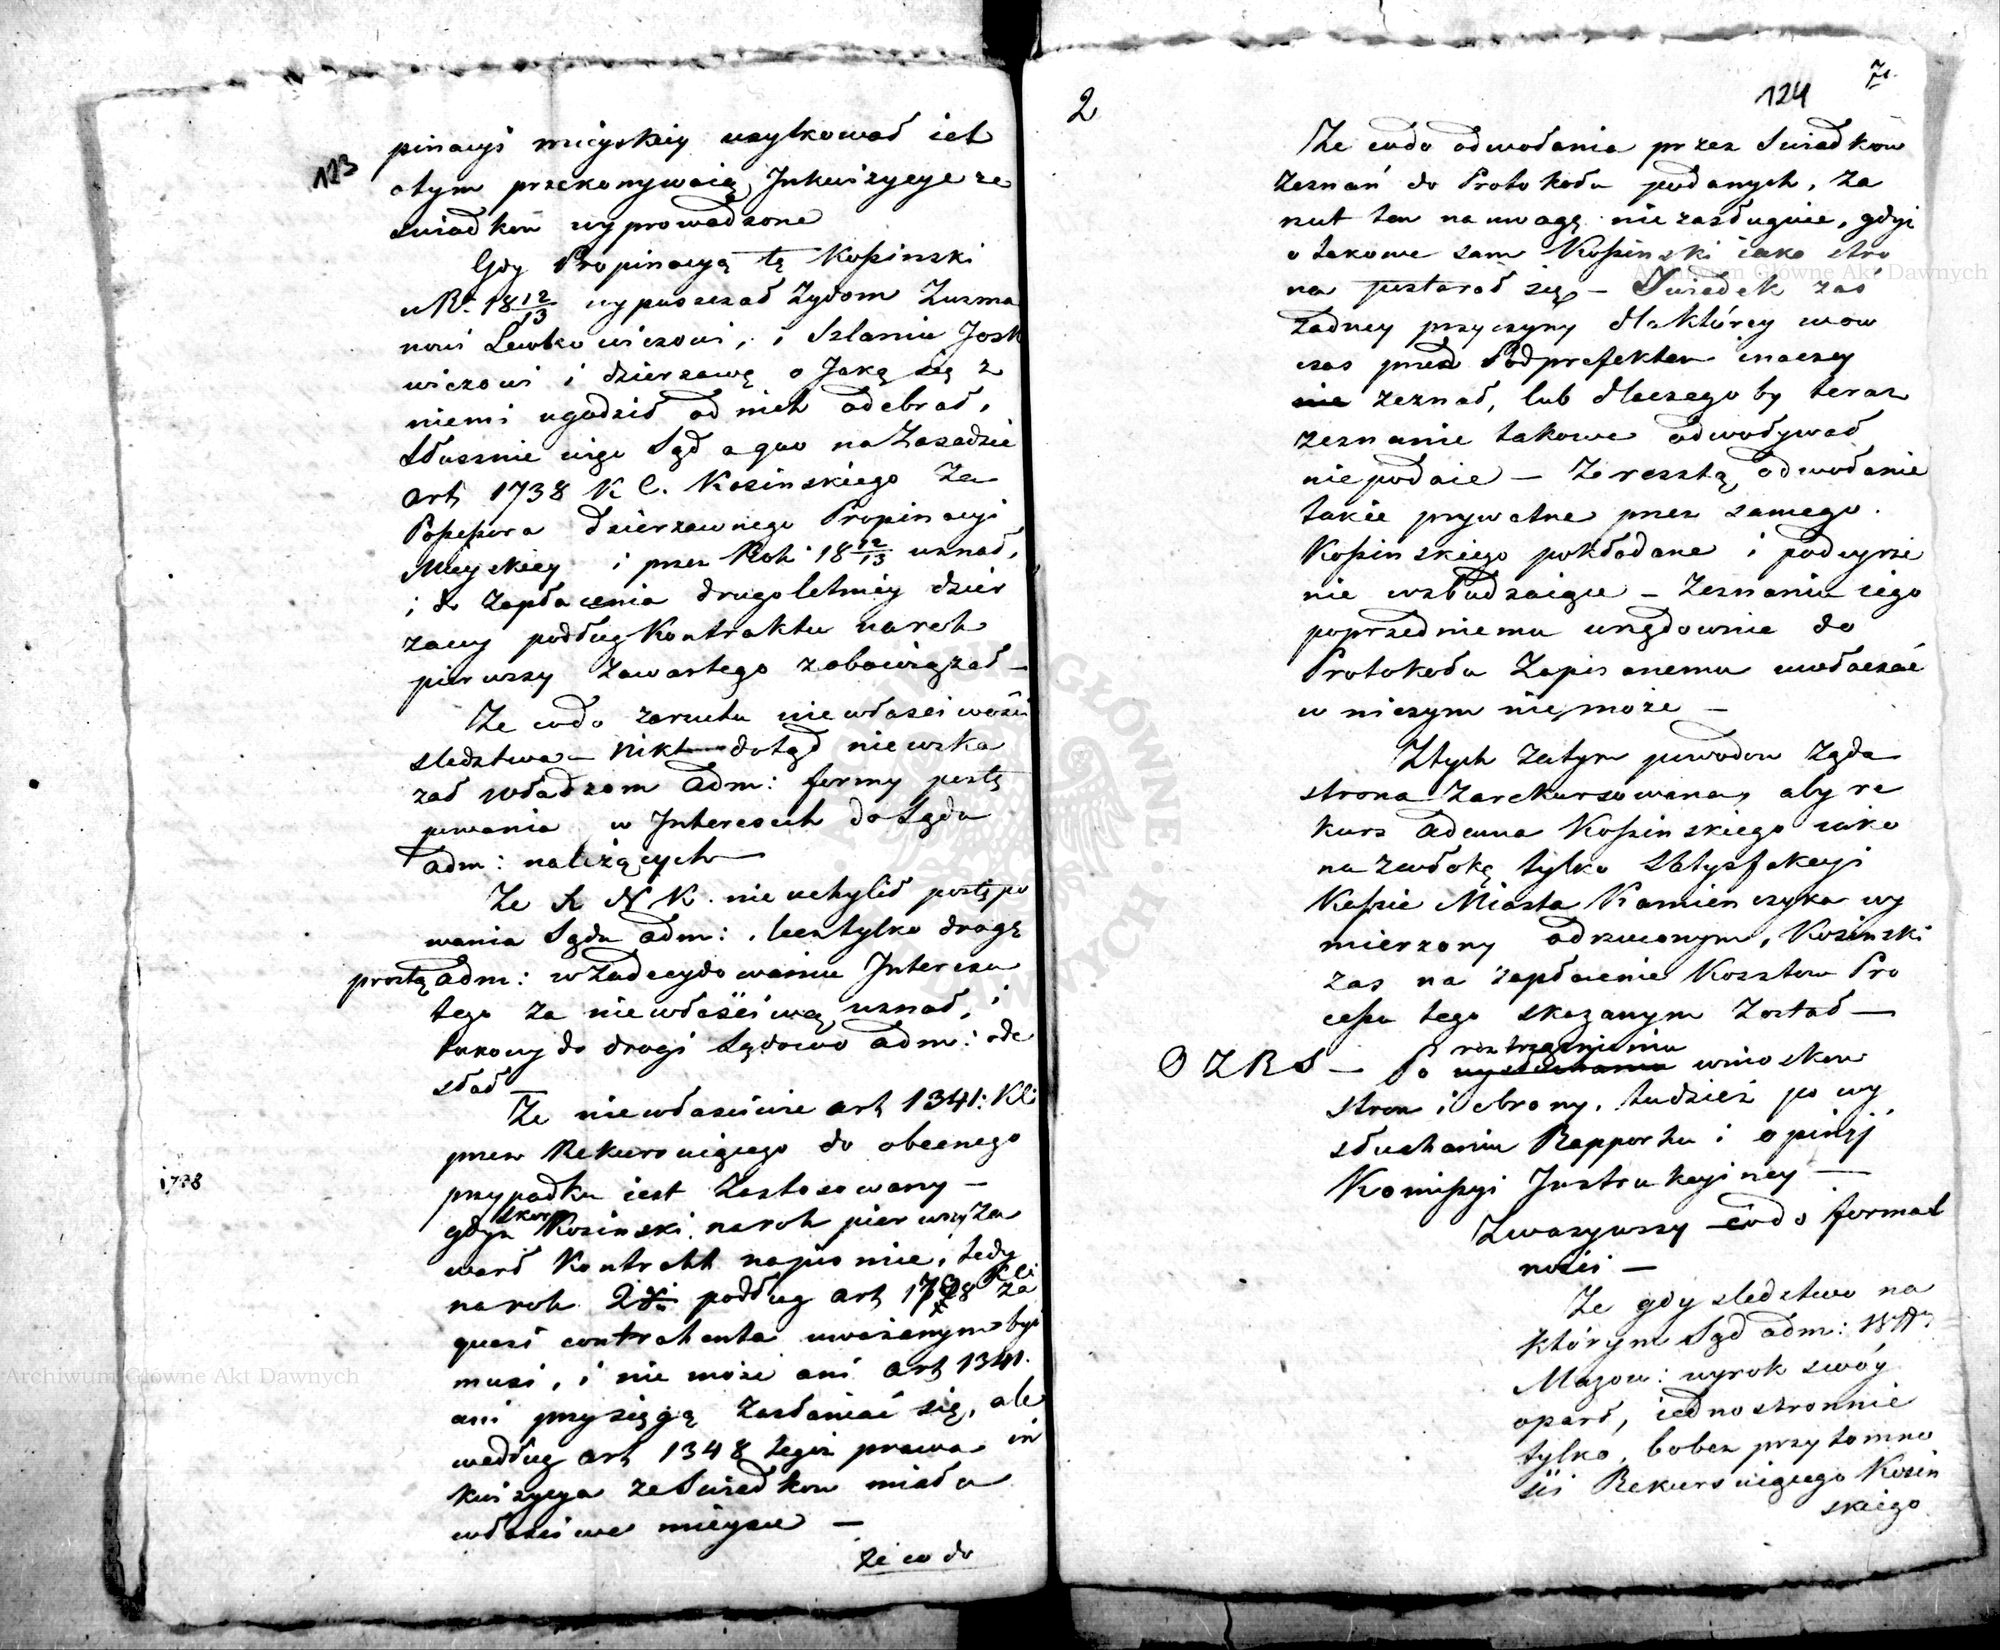 123
pinacyi mieyskiey uzytkował iek
otym przekonywaią Inkwizycye ze
swiadkow wyprowadzone
Gdy Propinacyą tę Kossinski
w R. 18 12/13 wypuszczał Zydom Zusma
nowi Lewkowiczowi, i Szlamie Josk
wiczowi i dzierzawę o Jaką się z
niemi ugodził od nich odebrał,
Słusznie więc Sąd a quo na Zasadzie
art 1738 K C. Kosinskiego Za
Possessora dzierzawnego Propinacyi
Mieyskiey i przez Rok 18 12/13 uznał,
i do Zapłacenia drugoletniey dzier
zawy podług Kontraktu na rok
pierwszy Zawartego zobowiązał —
Ze codo zarzutu niewłasciwości
sledztwa — nikt dotąd niewska
zał władzom adm: formy postę
powania w Interesach do Sądu
adm: należących —
Ze R N K. nie uchylił postępo
wania Sądu adm: , lecz tylko drogę
prostą adm: w Zadecydowaniu Interesu
tego za niewłaściwą, uznał, i
takowy do drogi Sądowo adm: ode
słał —
Ze niewłaściwie art 1341: KC:
przez Rekursuiącego do obecnego
1738
przypadku iest Zastosowany —
skoro
gdyz Kosinski na rok pierwszy Za
warł Kontrakt na pismie, tedy
na rok 2gi podług art 1738 KC: za
quasi contrahenta uważanym być
musi, i nie może ani art 1341.
ani przysięgą Zasłaniać się, ale
według art 1348 tegoż prawa in
kwizycya ze Swiadkow miała
właściwe mieysce —
Ze co do
2
124
71.
Ze codo odwołania przez Swiadkow
Zeznań do Protokołu podanych, Za
rzut ten na uwagę nie zasługuie, gdyż
o takowe sam Kossinski iako stro
na postarał się — Swiadek zas
żadney przyczyny dla ktorey wow
czas przed Podprefektem inaczey
nie zeznał, lub dlaczego by teraz
zeznanie takowe odwoływał
nie podaie — Zresztą, odwołanie
takie prywatne przez samego
Kossinskiego pokładane i podeyrze
nie wzbudzaiące — Zeznaniu iego
poprzedniemu urzędownie do
Protokołu Zapisanemu uwłaczać
w niczym nie może —
Z tych Zatym powodow Ząda
strona Zarekursowana, aby re
kurs adama Kossinskiego iako
na zwłokę tylko Satysfakcyi
Kassie Miasta Kamienczyka wy
mierzony odrzuconym, Kosinski
zas na zapłacenie Kosztow Pro
cessu tego skazanym Został —
O Z R S — Po wysłuchaniu wniosków
roztrząsnieniu
stron i obrony, tudzież po wy
słuchaniu Rapportu i opinij
Komissyi Instrukcyiney —
Zwazywszy codo formal
nosci —
Ze gdy sledztwo na
którym Sąd adm: Wdz
Mazow: wyrok swóy
oparł, iednostronnie
tylko, bo bez przytomno
ści Rekursuiącego Kosin
skiego
Archiwum Główne Akt Dawnych
Archiwum Główne Akt Dawnych
ARCHIWUM GŁÓWNE AKT DAWNYCH